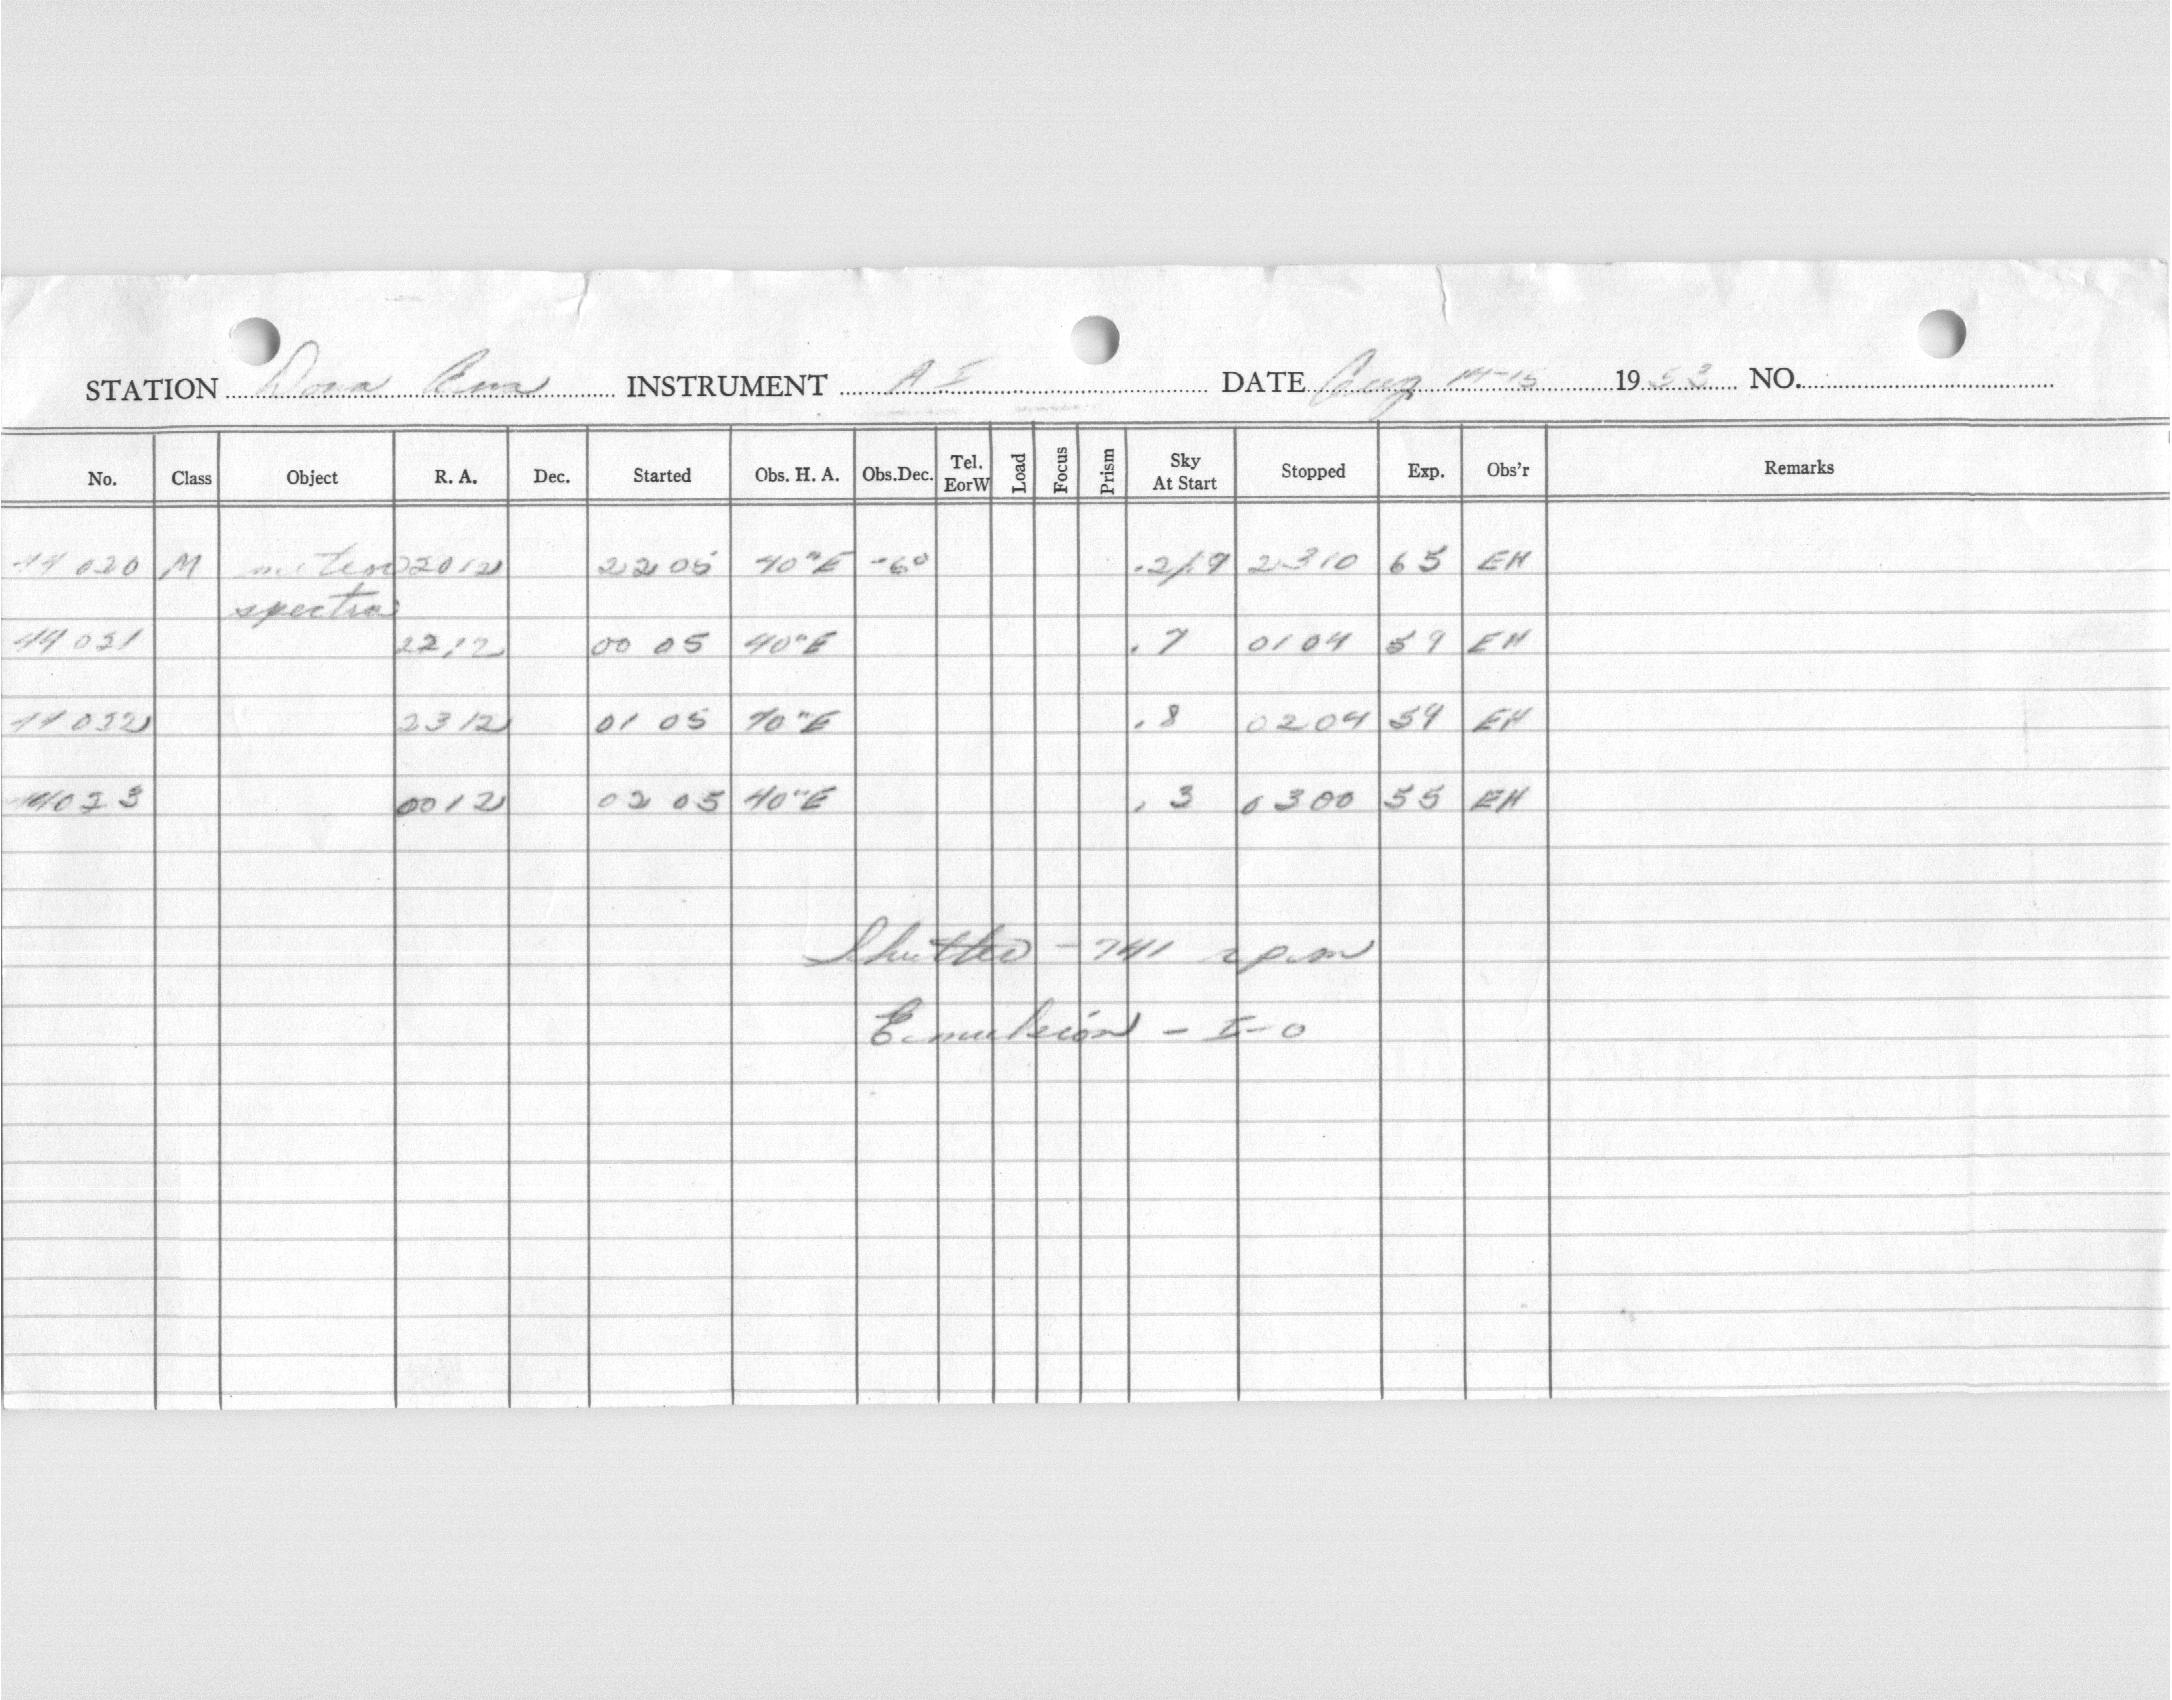 STATION Dona Ana INSTRUMENT AI DATE Aug 14-15 1953 NO.
No. Class Object R. A. Dec. Started Obs. H. A. Obs.Dec. Tel. EorW Load Focus Prism Sky At Start Stopped Exp. Obs'r Remarks
44020 M meteor 2012 2205 40mE -6° .2/.9 2310 65 EH
spectra
2212 00 05 40mE .7 0104 59 EH
2312 01 05 40mE .8 0204 59 EH
0012 02 05 40mE .3 0300 55 EH
Shutter - 741 rpm
Emulsion - I-O